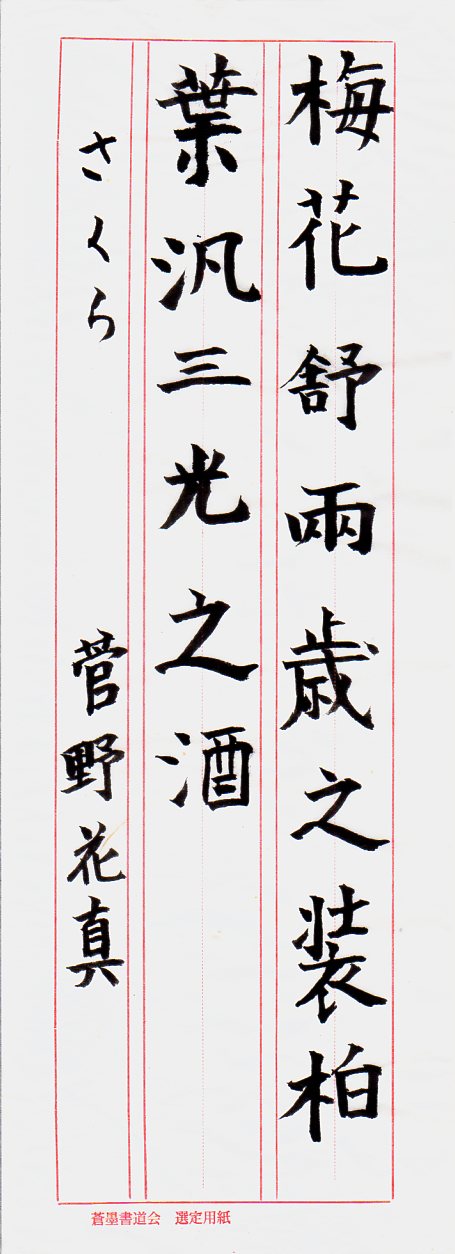 梅花舒兩歳之装柏
葉汎三光之酒
さくら 菅野花真
蒼墨書道会 選定用紙